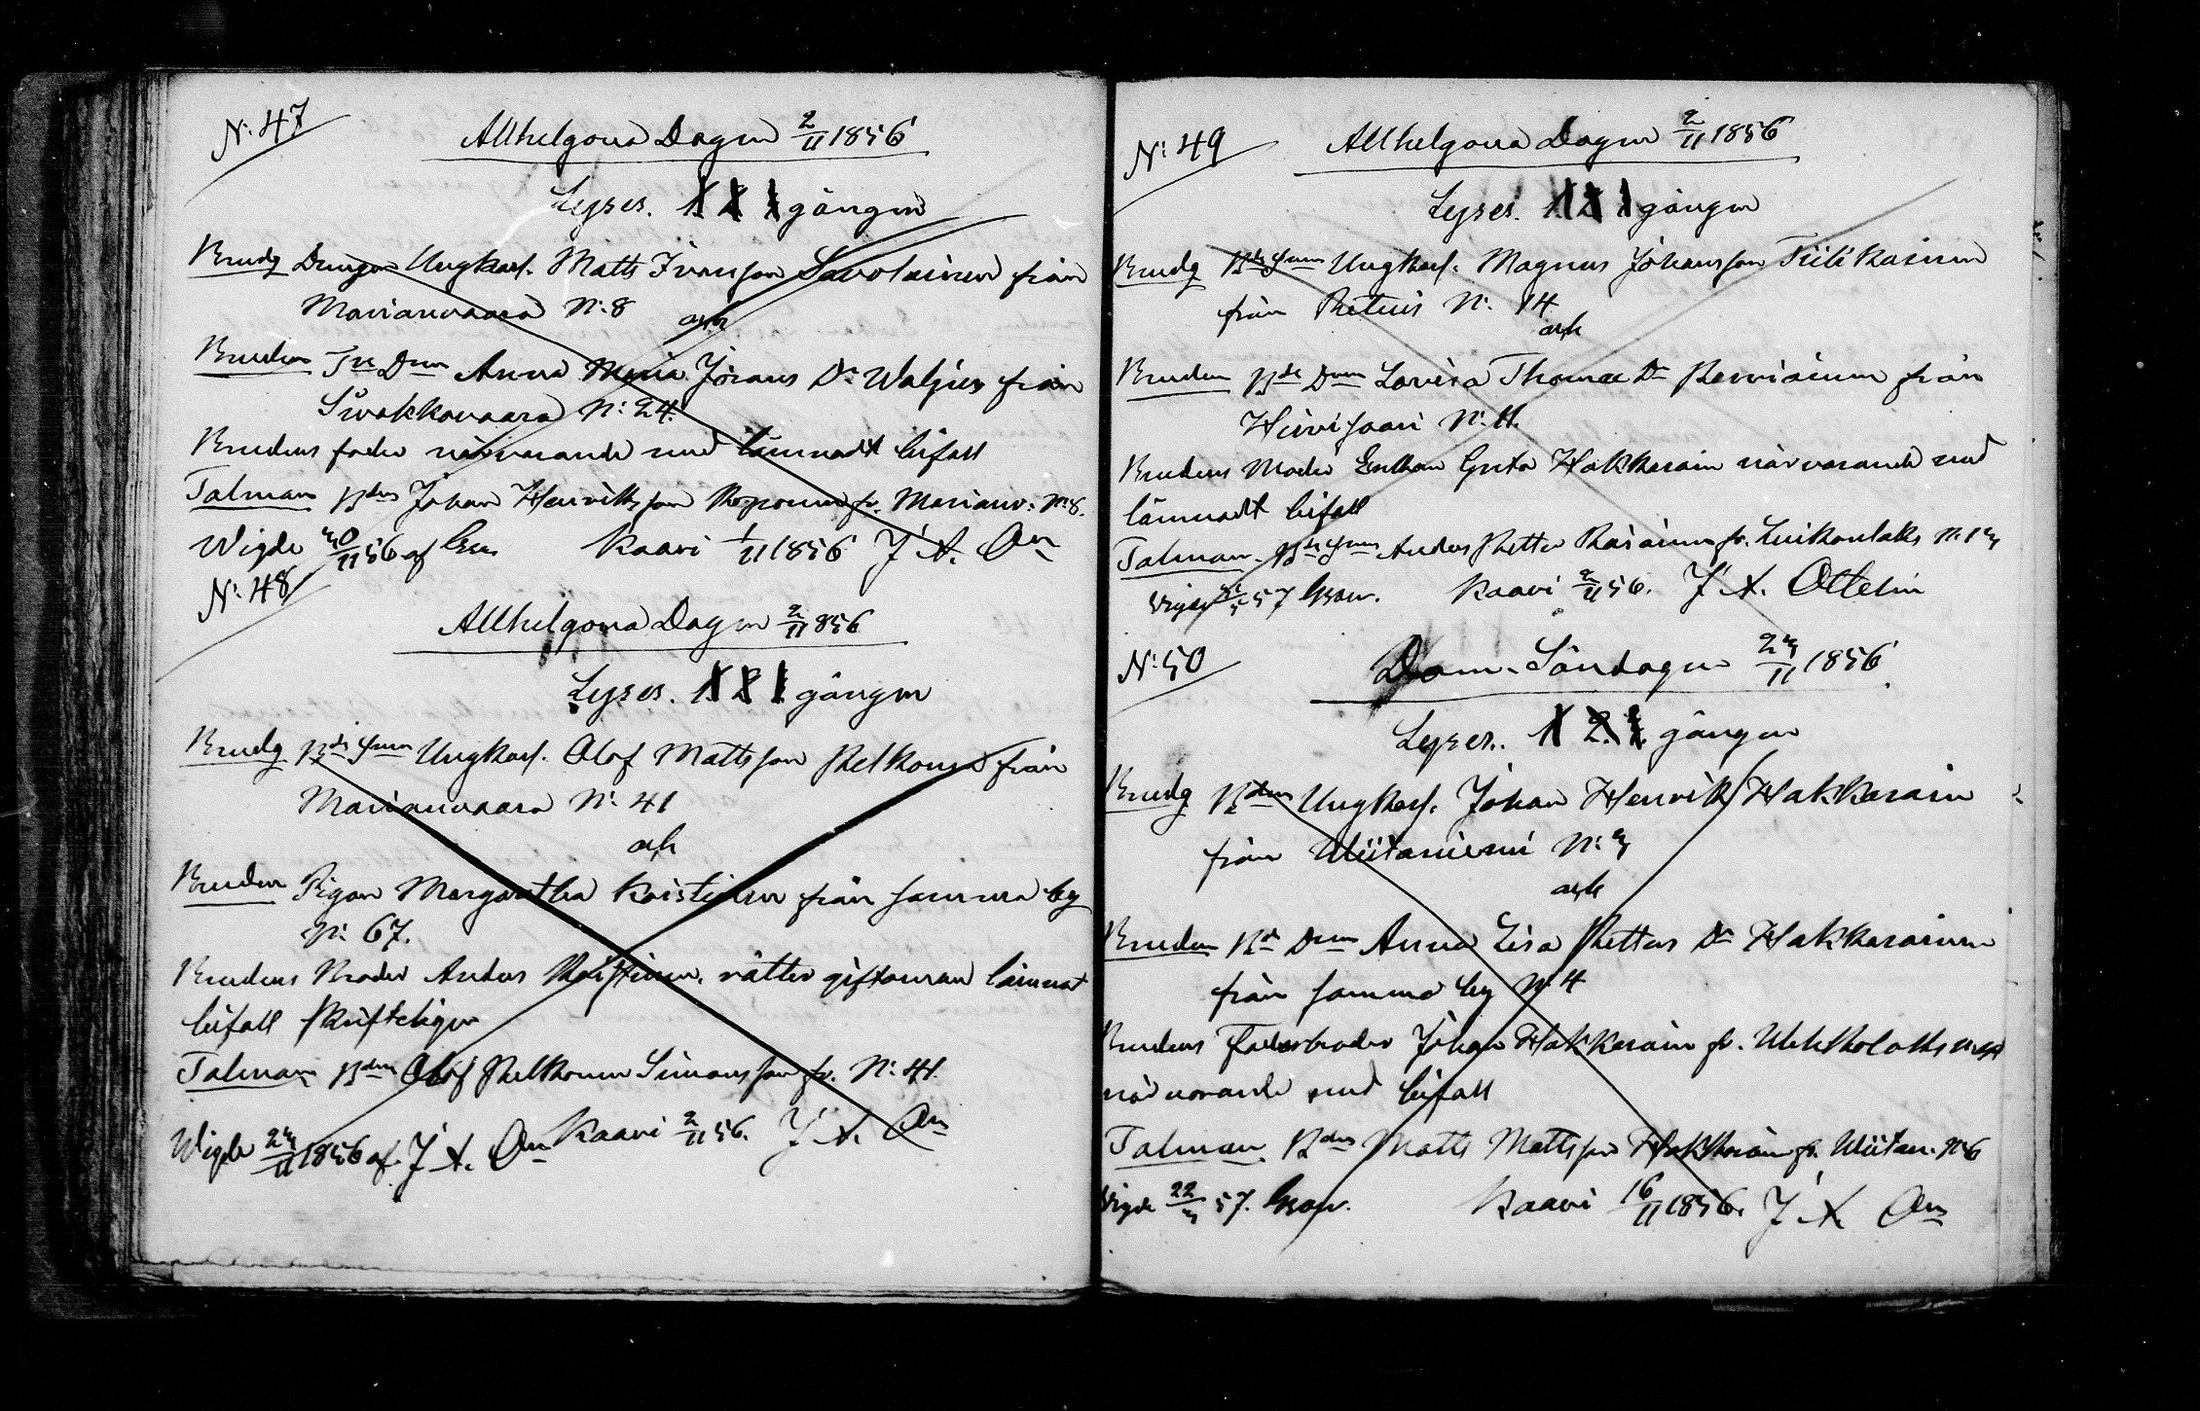 N: 47
Allhelgona Dagen 2/11 1856
Lyses. 1 2 3 gången
Brudg Drängen Ungkarl. Matts Ivarsson Savolainen från
Marianvaara N: 8
och
Bruden Tr. Dnn Anna Maria Jörans Dr Waljus från
Siwakkavaara N: 24.
Brudens fader närvarande med lämnadt bifall
Talman Bdn Johan Henriksson Roponen fr. Marianv: N: 8.
Wigde 30/11 56 af Kaavi 1/11 1856 J. A. On
N: 48
Allhelgona Dagen 2/11 1856
Lyses. 1 2 3 gången
Brudg Bde Snn Ungkarl. Olof Mattsson Pelkonen från
Marianvaara N: 41
och
Bruden Pigan Margaretha Koistinen från samma by
N: 67.
Brudens Broder Anders Koistinen, rätter giftoman lämnat
bifall skrifteligen
Talman Bdn Olof Pelkonen Simonsson fr. N: 41.
Wigde 23/11 1856 af J. A. On Kaavi 2/11 56. J. A. On
N: 49
Allhelgona Dagen 2/11 1856
Lyses. 1 2 3 gången
Brudg Bde Snn Ungkarl. Magnus Johansson Tiilikainen
från Retuis N: 14
och
Bruden Bde Dnn Lovisa Thomæ Dr från
Hirvisaari N: 11.
Brudens Moder Enkan Greta Hakkarain närvarande med
lämnadt bifall
Talman Bde Snn Anders Petter Räsänen fr. Luikonlaks N: 13
Vigde 57 Kaavi 2/11 56. J. A. Ottelin
N: 50
Dom-Söndagen 23/11 1856
Lyses. 1 2 3 gången
Brudg Bdn Ungkarl. Johan Henrik Hakkarain
från Wiitaniemi N: 3
och
Bruden Bd Dnn Anna Lisa Petters Dr Hakkarainen
från samma by N: 4
Brudens Faderbroder Johan Hakkarain fr.
närvarande med bifall
Talman Bdn Matts Mattsson Hakkarain fr. Wiitan. N: 6
Vigde 22/3 57. Kaavi 16/11 1856. J. A. On